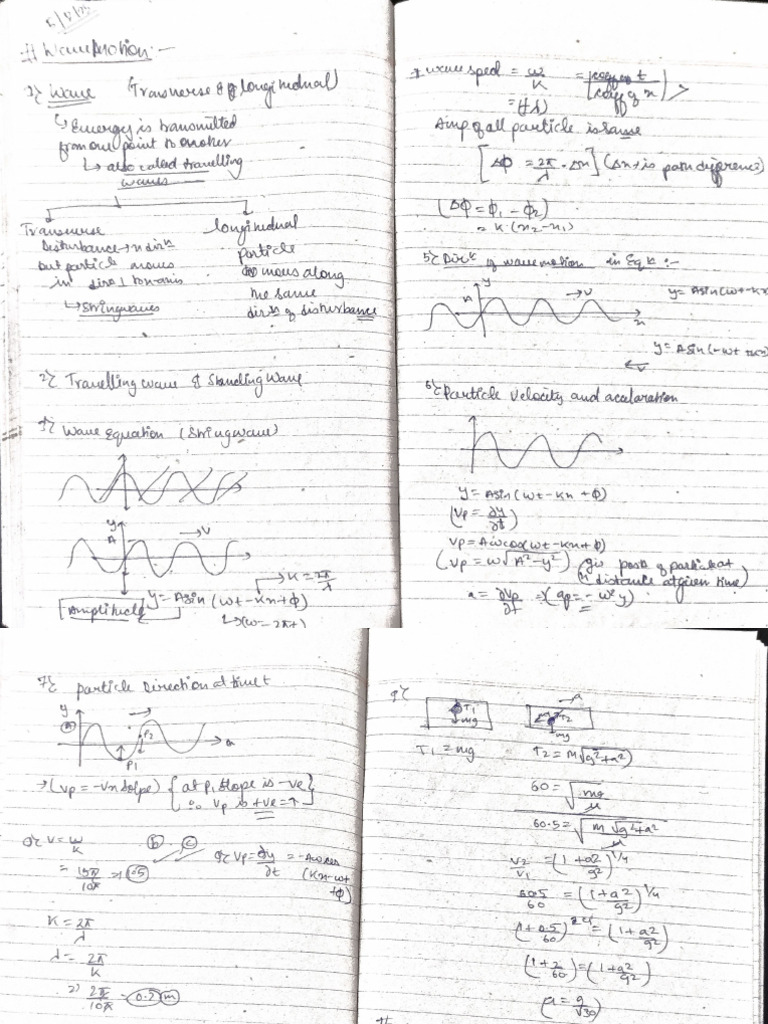 # Wave Motion :-
1) Wave (Transverse & longitudinal)
↳ Energy is transmitted
from one point to another
↳ also called travelling
waves
Transverse
Disturbance → x dirⁿ
but particle moves
in dirⁿ ⊥ to x axis
↳ String waves
longitudinal
particle
moves along
the same
dirⁿ of disturbance
2) Travelling wave & Standing Wave
3) Wave Equation (String wave)
y
A
→ v
Amplitude
y = A sin (ωt - kx + φ)
→ k = 2π/λ
↳ (ω = 2πf)
wave speed = ω/k = |coeff of t / coeff of x|
= (fλ)
Amp of all particle is same
[Δφ = 2π/λ · Δx] (Δx → is path difference)
(Δφ = φ1 - φ2)
= k·(x2 - x1)
5) Dirⁿ of wave motion in Eqⁿ :-
y
A
→ v
x
y = A sin(ωt - kx
y = A sin(-ωt + kx
← v
6) Particle velocity and accelaration
y = A sin(ωt - kx + φ)
(Vp = ∂y/∂t)
Vp = Aω cos(ωt - kx + φ)
(Vp = ω√A² - y²) (giv posⁿ of particle at
x distance at given time)
a = ∂Vp/∂t ⇒ (ap = -ω²y)
7) particle Direction at time t
y
A
P2
P1
→ (Vp = -V x slope) { at P1 slope is -ve
∴ Vp is +ve = ↑ }
V = ω/k
= 15π/10π ⇒ 1.5
b c
Vp = ∂y/∂t = -Aω cos
(kx - ωt
+ φ)
k = 2π/λ
λ = 2π/k
⇒ 2π/10π = 0.2 m
9)
T1
mg
→ a
T2
mg
T1 = mg
T2 = m√g²+a²
60 = √mg/μ
60.5 = √m√g²+a²/μ
V2/V1 = (1 + a²/g²)^1/4
60.5/60 = (1 + a²/g²)^1/4
(1 + 0.5/60)^4 = (1 + a²/g²)
(1 + 2/60) = (1 + a²/g²)
(a = g/√30)